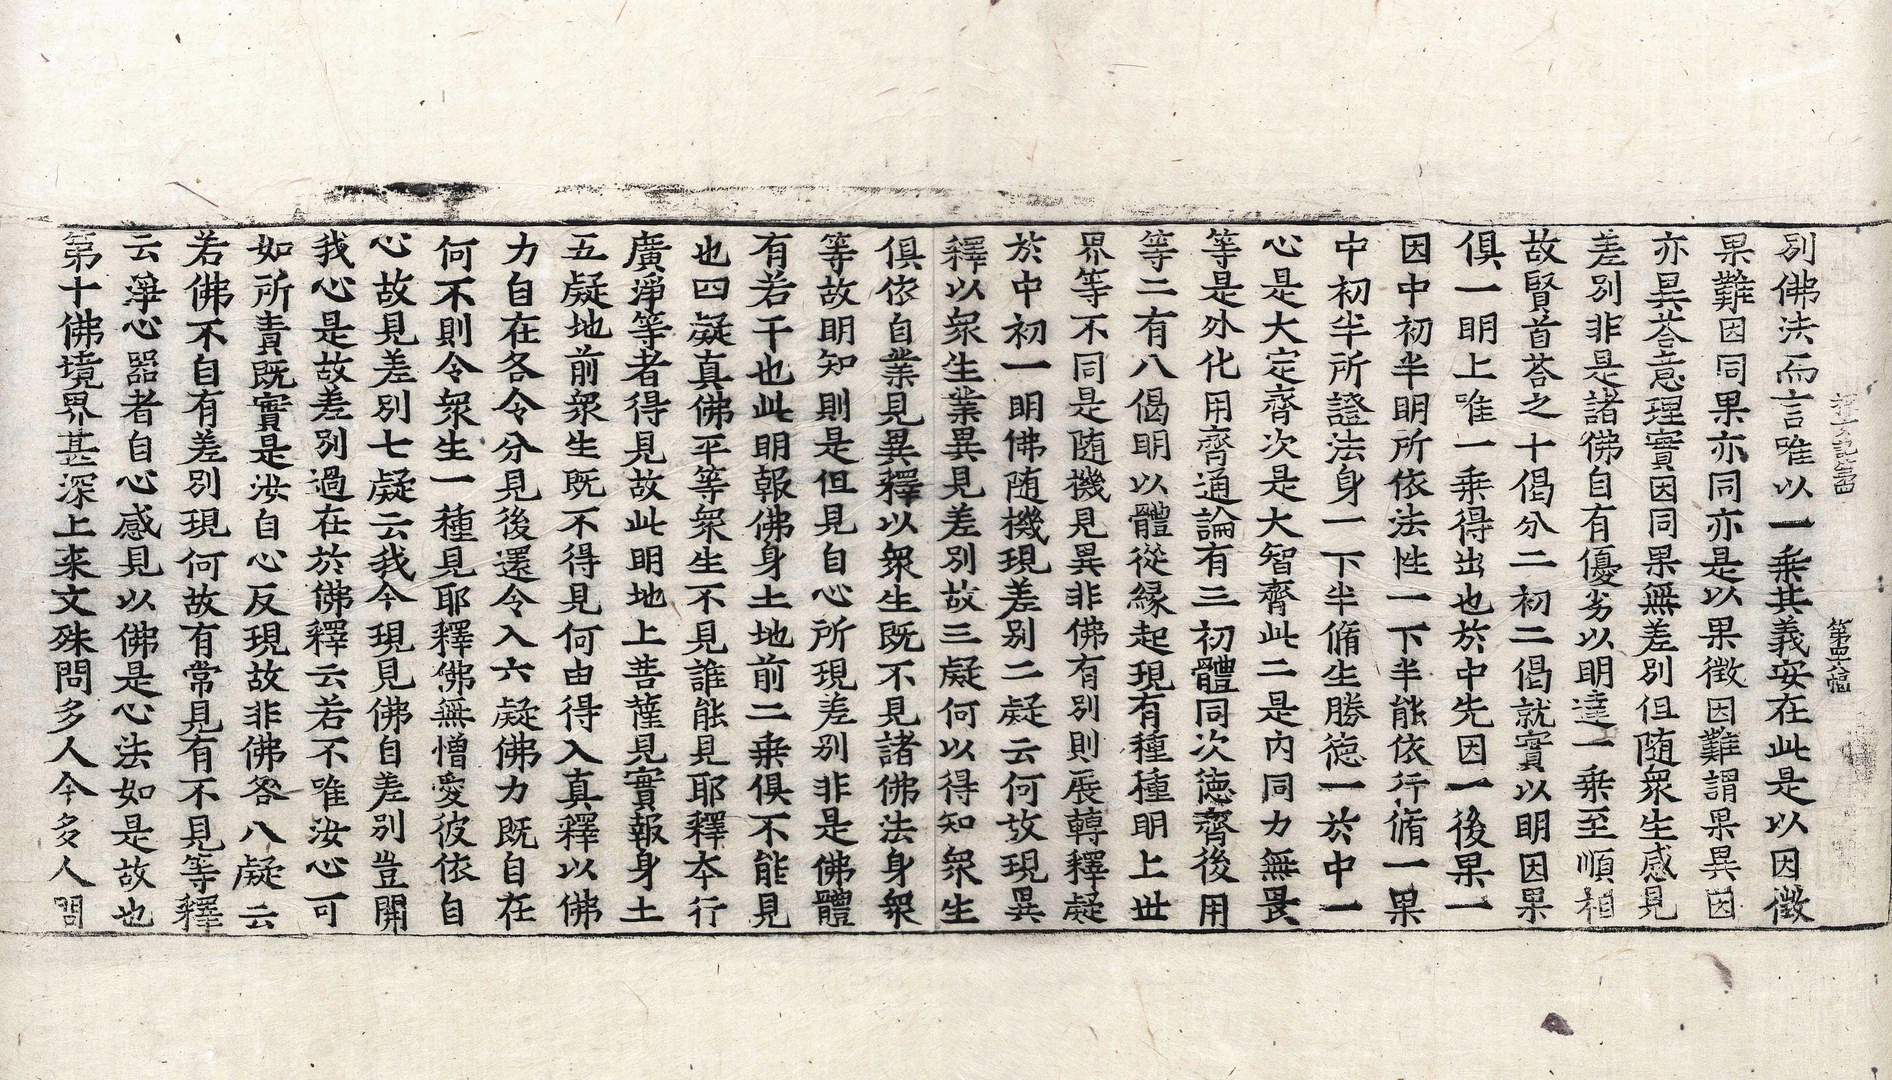 別佛法而言唯以一乗其義安在此是以因徴
果難因同果亦同亦是以果徴因難謂果異因
亦異荅意理實因同果無差別但随衆生感見
差別非是諸佛自有優劣以明達一乗至順相
故賢首荅之十偈分二初二偈就實以明因果
俱一明上唯一乗得出也於中先因一後果一
因中初半明所依法性一下半能依行脩一果
中初半所證法身一下半脩生勝德一於中一
心是大定齊次是大智齊此二是内同力無畏
等是外化用齊通論有三初體同次徳齊後用
等二有八偈明以體從縁起現有種種明上世
界等不同是随機見異非佛有別則展轉釋疑
於中初一明佛随機現差别二疑云何故現異
釋以衆生業異見差別故三疑何以得知衆生
俱依自業見異釋以衆生既不見諸佛法身衆
等故明知則是但見自心所現差别非是佛體
有若干也此明報佛身土地前二乗俱不能見
也四疑真佛平等衆生不見誰能見耶釋夲行
廣淨等者得見故此明地上菩薩見實報身土
五疑地前衆生既不得見何由得入真釋以佛
力自在各令分見後還令入六疑佛力既自在
何不則令衆生一種見耶釋佛無憎愛彼依自
心故見差別七疑云我今現見佛自差別豈開
我心是故差別過在於佛釋云若不唯汝心可
如所責既實是汝自心反現故非佛咎八疑云
若佛不自有差別現何故有常見有不見等釋
云蕅心器者自心感見以佛是心法如是故也
第十佛境界甚深上来文殊問多人今多人問